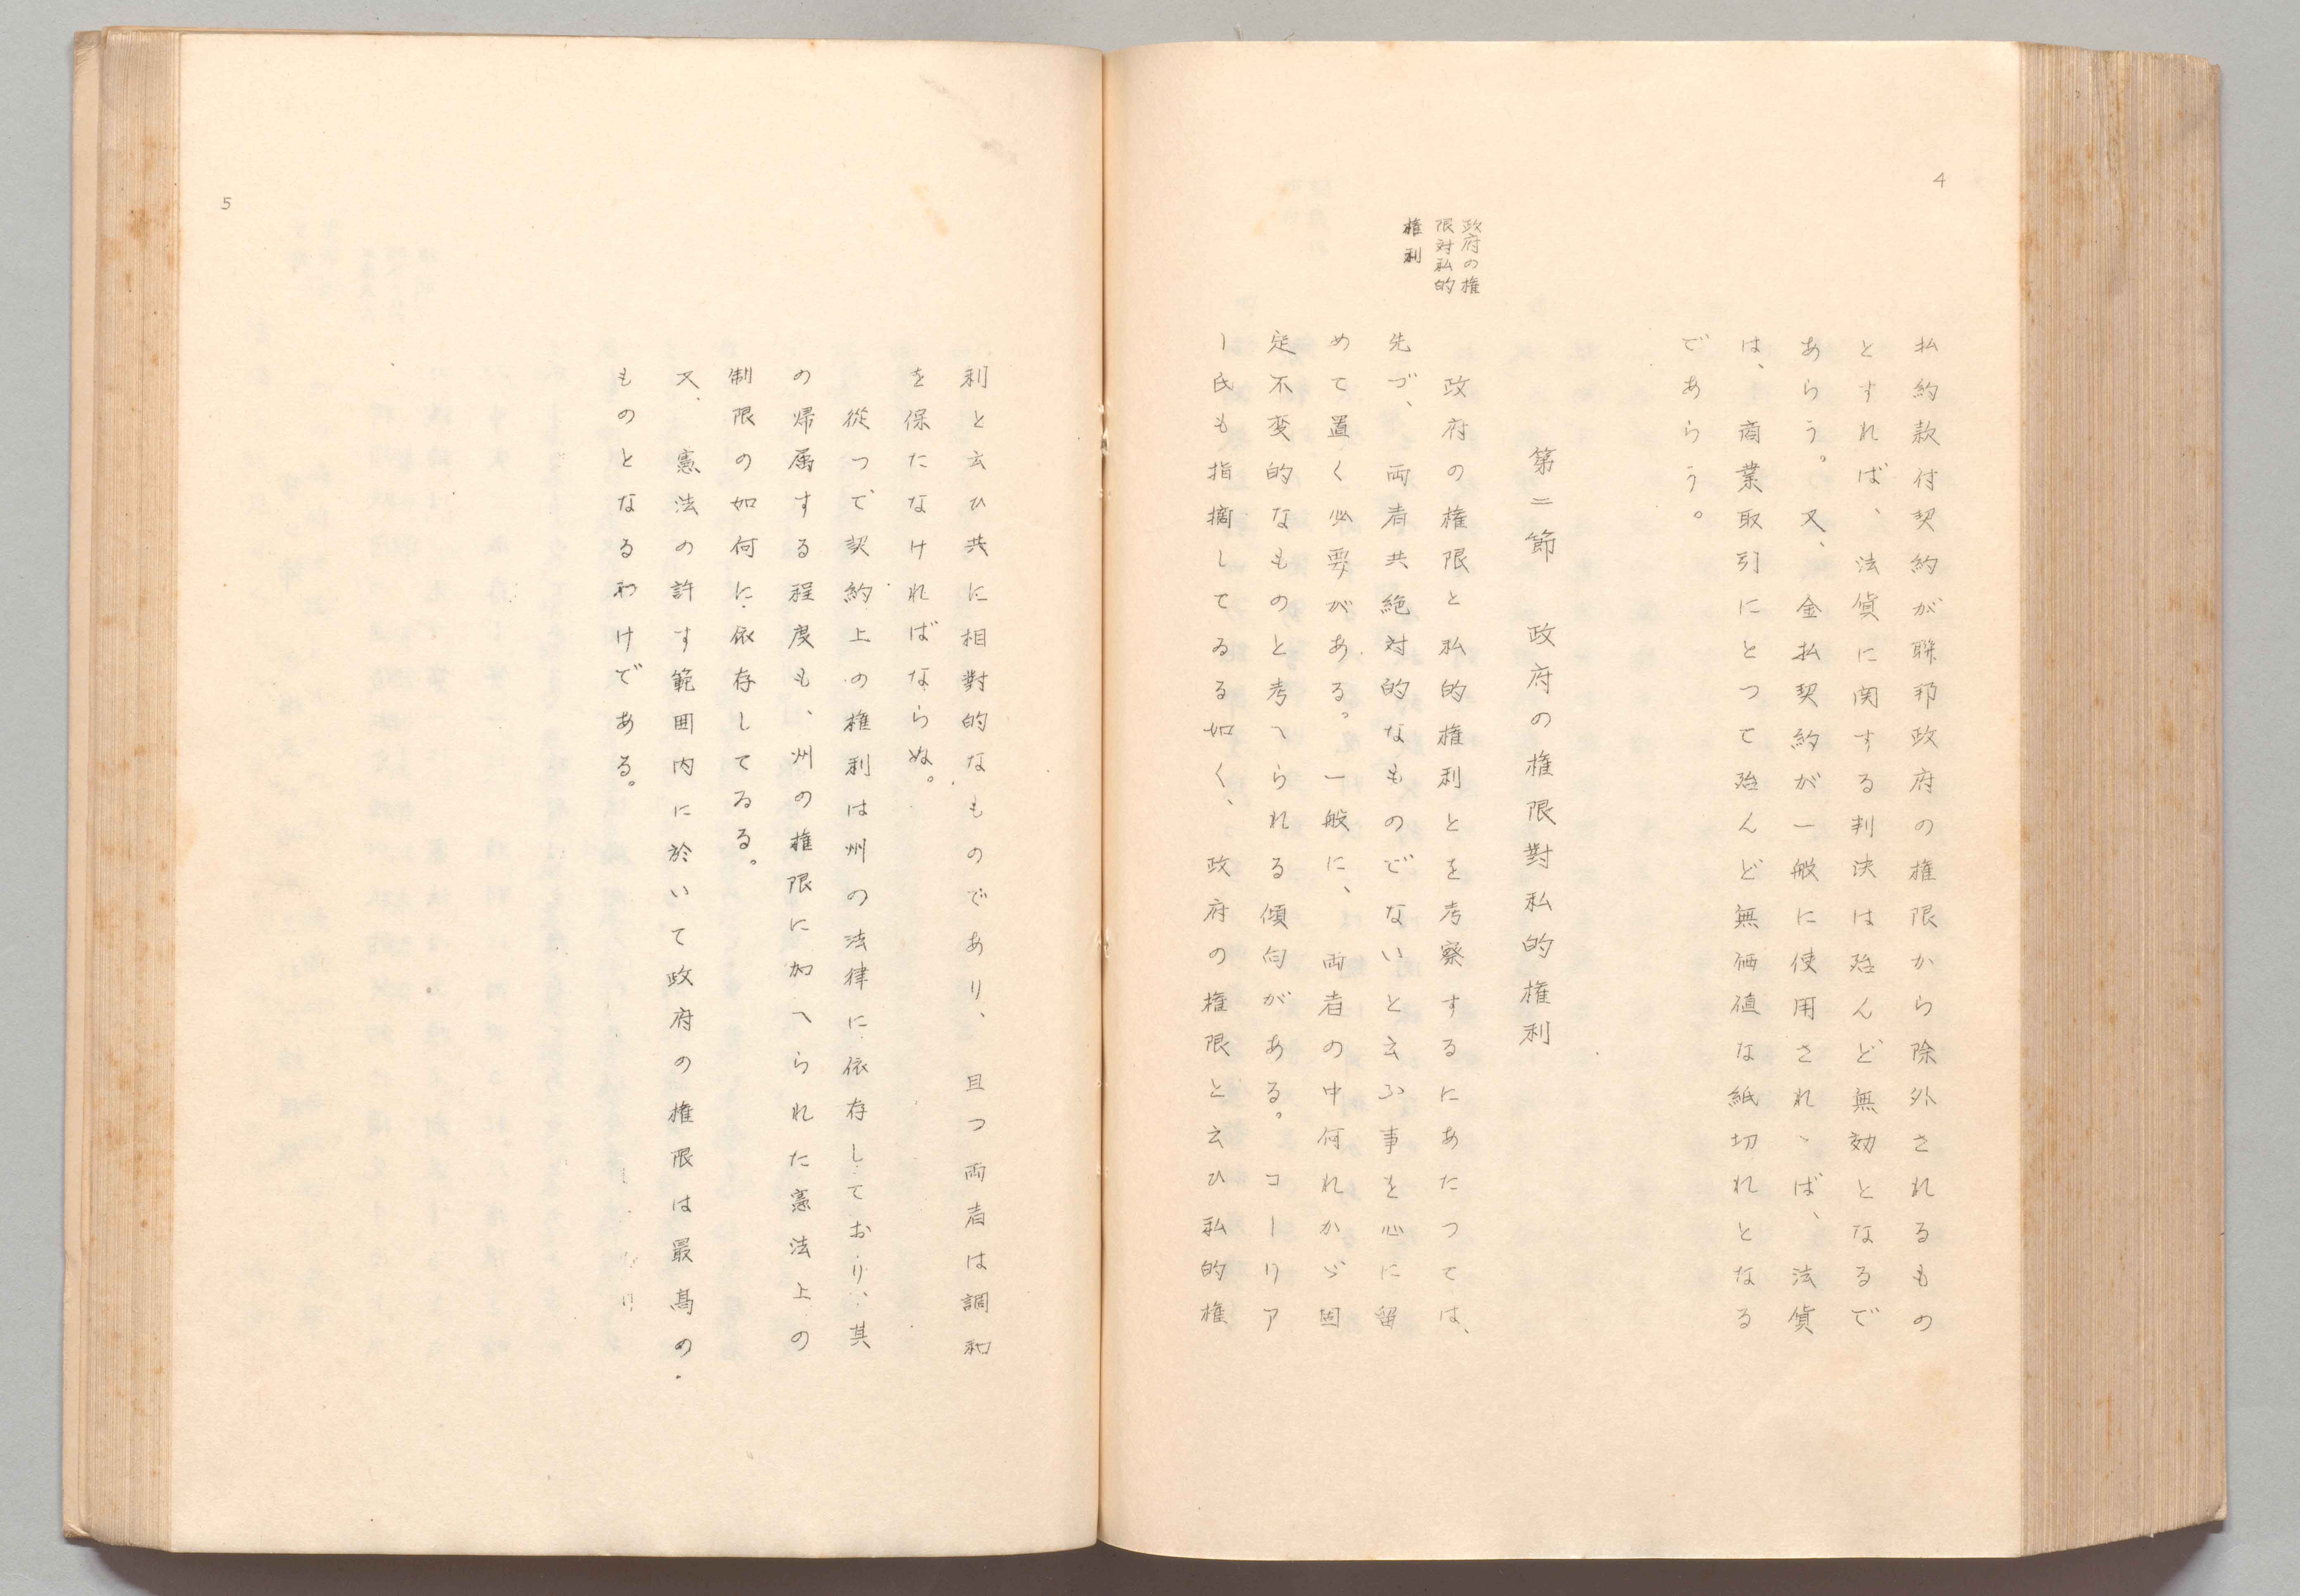 4
払約款付契約が聯邦政府の権限から除外されるもの
とすれば、法貨に関する判決は殆んど無効となるで
あらう。又、金払契約が一般に使用されゝば、法貨
は、商業取引にとつて殆んど無価値な紙切れとなる
であらう。
第二節 政府の権限對私的権利
政府の権
限対私的
権利
政府の権限と私的権利とを考察するにあたつては、
先づ、両者共絶対的なものでないと云ふ事を心に留
めて置く必要がある。一般に、両者の中何れかゞ固
定不変的なものと考へられる傾向がある。コーリア
ー氏も指摘してゐる如く、政府の権限と云ひ私的権
利と云ひ共に相對的なものであり、且つ両者は調和
を保たなければならぬ。
從つて契約上の権利は州の法律に依存しており、其
の帰属する程度も、州の権限に加へられた憲法上の
制限の如何に依存してゐる。
又、憲法の許す範囲内に於いて政府の権限は最高の
ものとなるわけである。
5